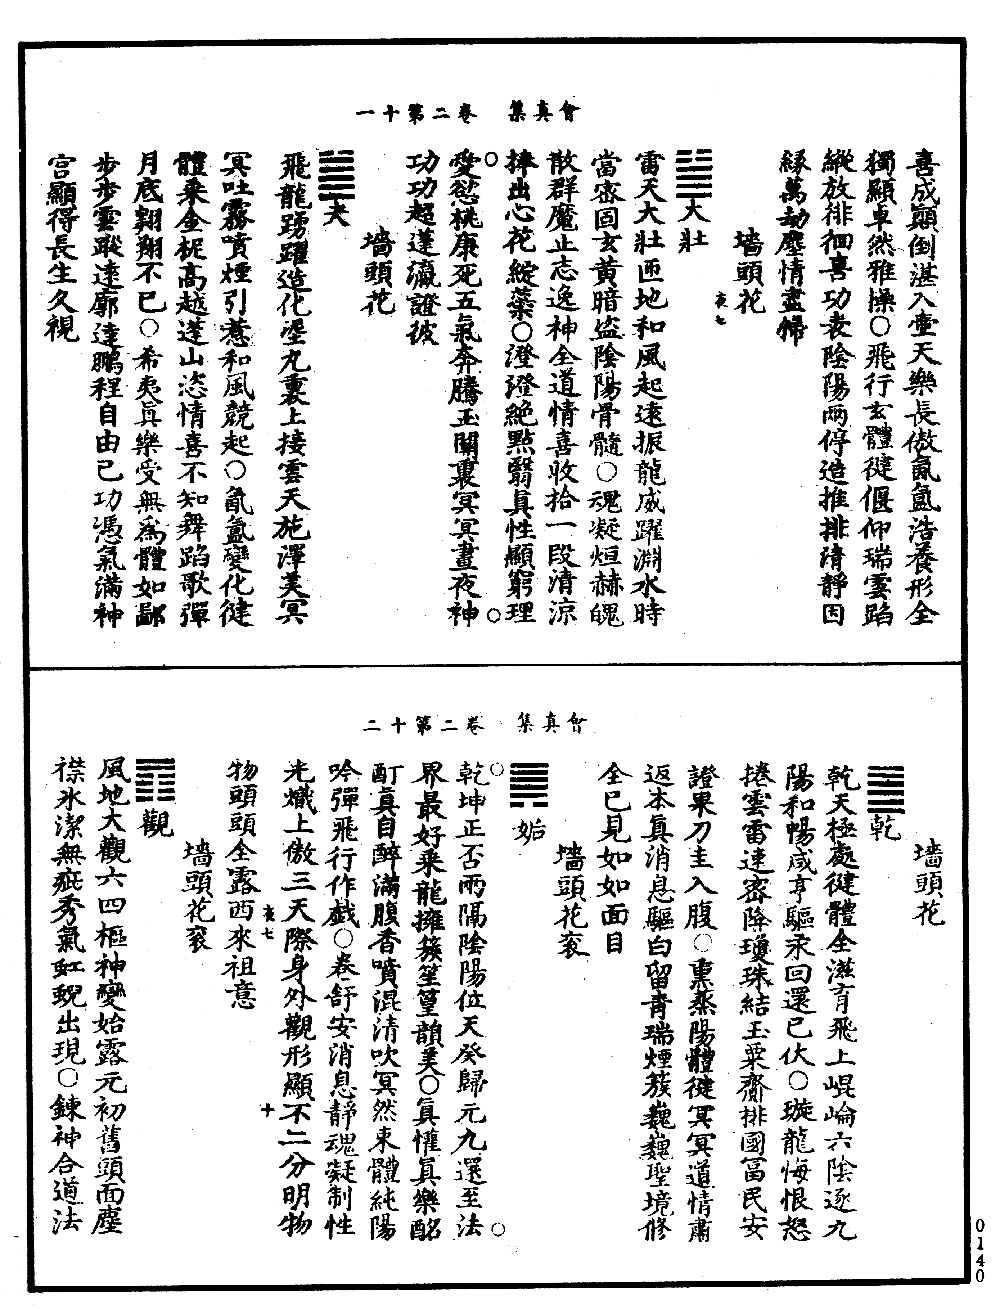 會真集　卷二第十一
喜成顛倒湛入壷天樂長傲氤氳浩養形全
獨顯卓然雅操○飛行玄體徤偃仰瑞雲蹈
縱放徘徊喜功表陰陽兩停造推排清靜因
緣萬劫塵情盡歸
墻頭花
亥七
䷡大壯
雷天大壯匝地和風起逺振龍威躍淵水時
當宻固玄黄暗盜陰陽骨髓○魂凝烜赫魄
散群魔止志逸神全道情喜收拾一段清涼
捧出心花綻蘂○澄澄絶點翳真性顯窮理
○愛慾桃康死五氣奔騰玉關裏冥冥晝夜神○
功功超蓬瀛證彼
墻頭花
䷪夬
飛龍踴躍造化堊九裏上接雲天施澤美冥
冥吐霧噴煙引惹和風競起○氤氳變化徤
體乗金桜高越蓬山恣情喜不知舞蹈歌彈
月底翺翔不已○希夷真樂受無爲體如鄙
步步雲蹤逺廓達鵬程自由已功憑氣滿神
宫顯得長生久視
會真集　卷二第十二
墻頭花
䷀乾
乾天極處徤體全滋育飛上崐崘六陰逐九
陽和暢咸亨驅永回還已伏○璇龍悔恨怒
捲雲雷速宻降瓊珠結玉粟齊排國冨民安
證果刀圭入腹○熏蒸陽體徤冥冥道情肅
返本真消息驅白留青瑞煙簇巍巍聖境修
全已見如如面目
墻頭花衮
䷫姤
○乾坤正否兩隔陰陽位天癸歸元九還至法○
界最好乗龍擁簇笙篁韻美○真懽真樂酩
酊真自醉滿腹香噴混清吹冥然東體純陽
吟彈飛行作戯○卷舒安消息靜魂凝制性
光熾上傲三天際身外觀形顯不二分明物
亥七
十
物頭頭全露西來祖意
墻頭花衮
䷓觀
風地大觀六四樞神變始露元初舊頭面塵
襟氷潔無疵秀氣虹蜺出現○鍊神合道法
0140